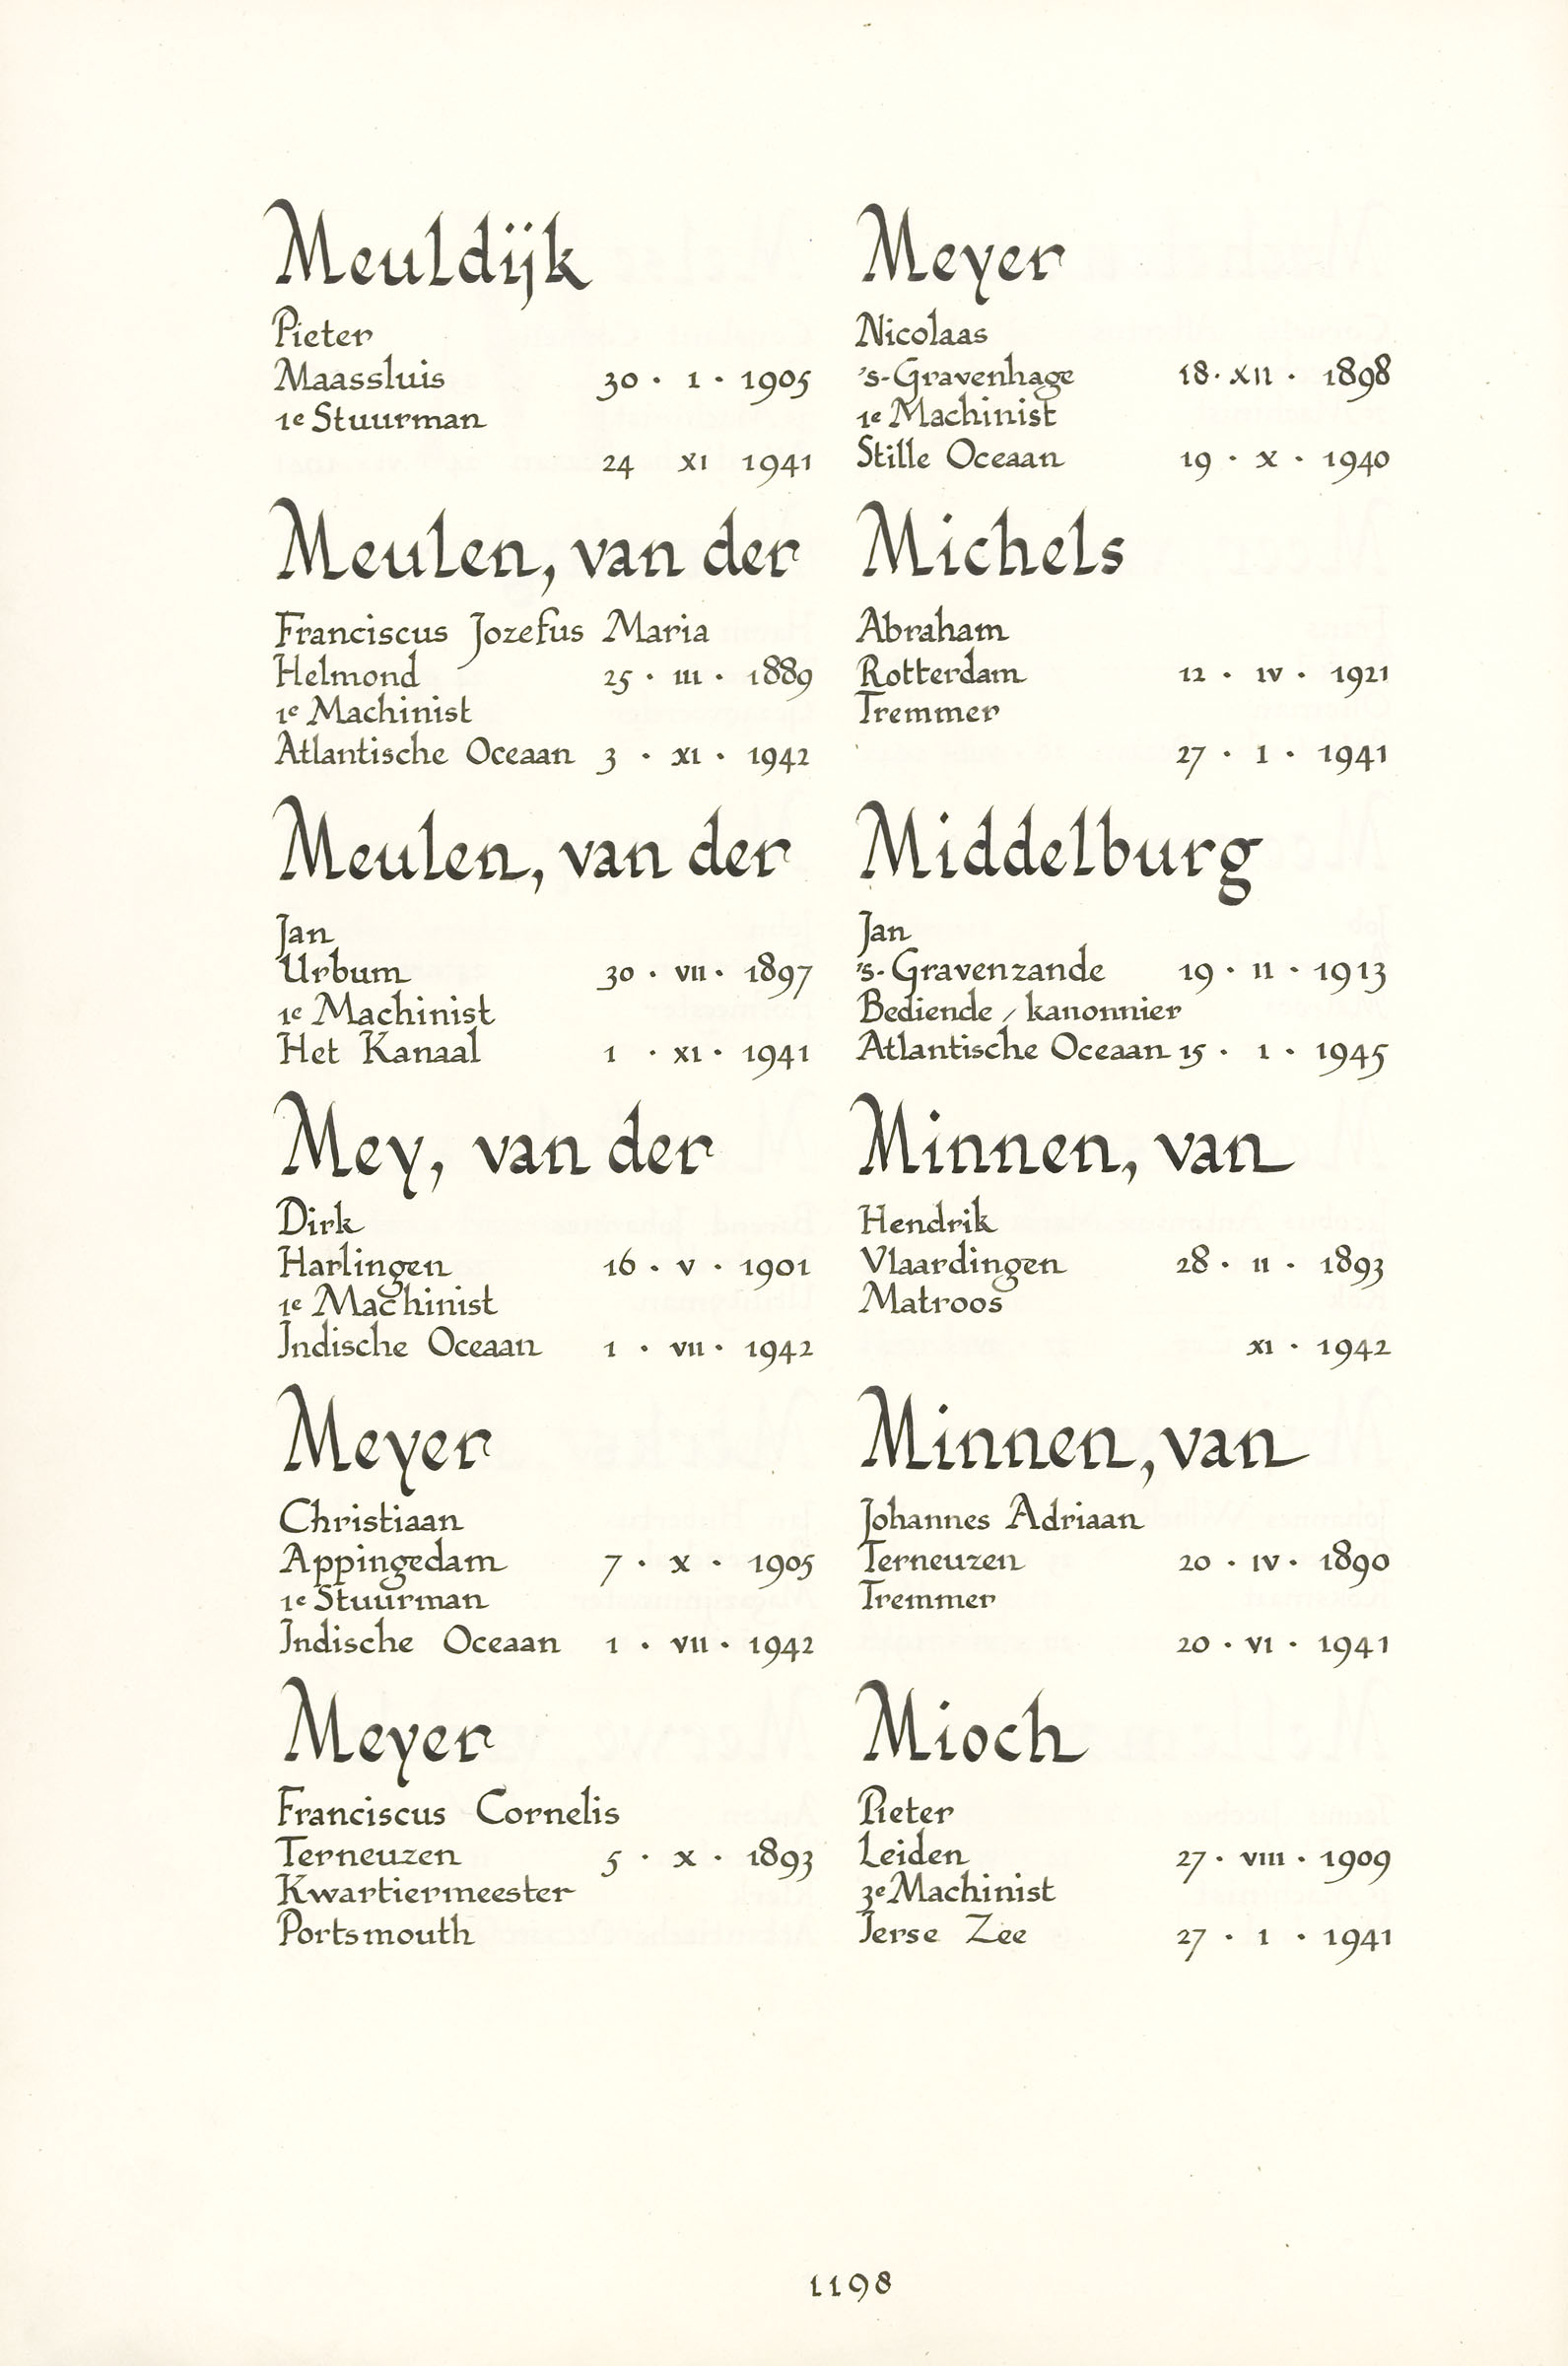 Meuldijk
Pieter
Maassluis 30 · I · 1905
1e Stuurman
24 XI 1941
Meulen, van der
Franciscus Jozefus Maria
Helmond 25 · III · 1889
1e Machinist
Atlantische Oceaan 3 · XI · 1942
Meulen, van der
Jan
Urbum 30 · VII · 1897
1e Machinist
Het Kanaal 1 · XI · 1941
Mey, van der
Dirk
Harlingen 16 · V · 1901
1e Machinist
Indische Oceaan 1 · VII · 1942
Meyer
Christiaan
Appingedam 7 · X · 1905
1e Stuurman
Indische Oceaan 1 · VII · 1942
Meyer
Franciscus Cornelis
Terneuzen 5 · X · 1893
Kwartiermeester
Portsmouth
Meyer
Nicolaas
's-Gravenhage 18 · XII · 1898
1e Machinist
Stille Oceaan 19 · X · 1940
Michels
Abraham
Rotterdam 12 · IV · 1921
Tremmer
27 · I · 1941
Middelburg
Jan
's-Gravenzande 19 · II · 1913
Bediende / kanonnier
Atlantische Oceaan 15 · I · 1945
Minnen, van
Hendrik
Vlaardingen 28 · II · 1893
Matroos
XI · 1942
Minnen, van
Johannes Adriaan
Terneuzen 20 · IV · 1890
Tremmer
20 · VI · 1941
Mioch
Pieter
Leiden 27 · VIII · 1909
3e Machinist
Ierse Zee 27 · I · 1941
1198